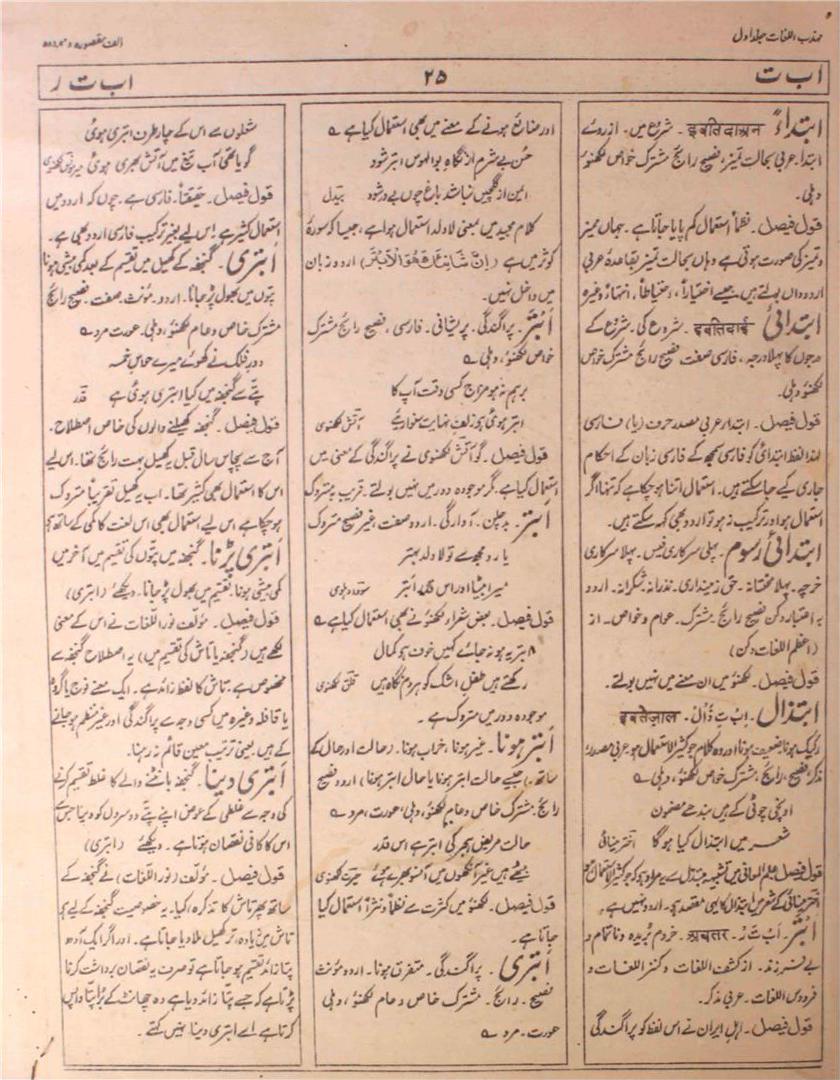 مہذب اللغات جلد اول
الف مقصورہ
ا ب ت
۲۵
ا ب ت ر
ابتداءً इबतिदाअन ۔ شروع میں ۔ از روئے
ابتدا ۔ عربی بحالت تمیز، فصیح رائج مشترک خواص لکھنؤ
دہلی ۔
قول فیصل ۔ نظماً استعمال کم پایا جاتا ہے ۔ جہاں ممیز
و تمیز کی صورت ہوتی ہے وہاں بحالت تمیز بقاعدۂ عربی
اردو داں بولتے ہیں ۔ جیسے اختیاراً، احتیاطاً، انتہاءً وغیرہ
ابتدائی इबतिदाई ۔ شروع کی ۔ شروع کے
درجوں کا پہلا درجہ، فارسی صفت فصیح رائج مشترک خواص
لکھنؤ دہلی ۔
قول فیصل ۔ ابتدا عربی مصدر حرف (یا) فارسی
لہذا لفظ ابتدائی کو فارسی سمجھ کے فارسی زبان کے احکام
جاری کیے جا سکتے ہیں ۔ استعمال اتنا ہو چکا ہے کہ تنہا اگر
استعمال ہو اور ترکیب نہ ہو تو اردو بھی کہہ سکتے ہیں ۔
ابتدائی رسوم ۔ پہلی سرکاری فیس ۔ پہلا سرکاری
خرچہ ۔ پہلا محنتانہ ۔ حق زمینداری ۔ نذرانہ ۔ شکرانہ ۔ اردو
بہ اعتبار دکن فصیح رائج ۔ مشترک ۔ عوام و خواص ۔ از
(اعظم اللغات دکن)
قول فیصل ۔ لکھنؤ میں ان معنے میں نہیں بولتے ۔
ابتذال ۔ اِبْ تِ ذَالْ ۔ इबतेज़ाल
رکیک ہونا، ضعیف ہونا اور وہ کلام جو کثیر الاستعمال ہو عربی مصدر
مذکر، فصیح، رائج، مشترک خواص لکھنؤ، دہلی ؎
اونچی چوٹی کے ہیں بندھے مضمون
شعر میں ابتذال کیا ہو گا اختر مینائی
قول فیصل علم المعانی میں تشبیہ مبتذل سے مراد ہے کہ جو کثیر الاستعمال ہو
اختر مینائی کے شعر میں ابتذال کا یہی مقصد ہے ۔ اردو نہیں ہے ۔
اَبْتَرْ ۔ اَبْ تَ رْ ۔ अबतर ۔ خروم بُریدہ و ناتمام و
بے فرزند ۔ از کشف اللغات و کنز اللغات و
فردوس اللغات ۔ عربی مذکر ۔
قول فیصل ۔ اہل ایران نے اس لفظ کو پراگندگی
اور ضائع ہونے کے معنے میں بھی استعمال کیا ہے ؎
حسن بے شرم از نگاہ بوالہوس ابتر شود
ایمن از گلچیں نباشد باغ چوں بے در شود بیدل
کلام مجید میں بمعنی لا ولد استعمال ہوا ہے، جیسا کہ سورۂ
کوثر میں ہے (اِنَّ شَانِئَكَ هُوَ الْاَبْتَرُ) اردو زبان
میں داخل نہیں ۔
اَبْتَرْ ۔ پراگندگی ۔ پریشانی ۔ فارسی، فصیح رائج مشترک
خواص لکھنؤ، دہلی ؎
برہم نہ ہو مزاج کسی وقت آپ کا
ابتر ہوئی ہے زلف نہایت سنواریے آتش لکھنوی
قول فیصل ۔ گو آتش لکھنوی نے پراگندگی کے معنی میں
استعمال کیا ہے ۔ مگر موجودہ دور میں نہیں بولتے ۔ قریب بہ متروک
اَبْتَرْ ۔ بد چلن ۔ آوارگی ۔ اردو صفت، غیر فصیح متروک
یا رد مجھ سے تو لا ولد بہتر
میرا بیٹا اور اس قدر ابتر سودا دہلوی
قول فیصل ۔ بعض شعراء لکھنؤ نے بھی استعمال کیا ہے ؎
ابتر یہ ہو نہ جائے کہیں خوف ہو کمال
رکھتے ہیں طفل اشک کو ہر دم نگاہ میں قلق لکھنوی
موجودہ دور میں متروک ہے ۔
اَبْتَر ہونا ۔ غیر ہونا، خراب ہونا ۔ (حالت اور حال کے
ساتھ) (جیسے حالت ابتر ہونا یا حال ابتر ہونا) اردو فصیح
رائج، مشترک خاص و عام لکھنؤ، دہلی، عورت، مرد ؎
حالت مریض ہجر کی ابتر ہے اس قدر
بیٹھے ہیں غیر آنکھوں میں آنسو بھرے ہوئے حیرت لکھنوی
قول فیصل ۔ لکھنؤ میں کثرت سے نظماً و نثراً استعمال کیا
جاتا ہے ۔
اَبْتَری ۔ پراگندگی ۔ متفرق ہونا ۔ اردو مؤنث
فصیح ۔ رائج ۔ مشترک خاص و عام لکھنؤ، دہلی
عورت ۔ مرد ؎
شعلوں سے اس کے چار طرف ابتری ہوئی
گویا تھی آب تیغ میں آتش بھری ہوئی میر مونس لکھنوی
قول فیصل ۔ حقیقتاً ۔ فارسی ہے ۔ چوں کہ اردو میں
استعمال کثیر ہے اس لیے بغیر ترکیب فارسی اردو بھی ہے ۔
اَبْتَری ۔ گنجفہ کے کھیل میں تقسیم کے بعد کمی بیشی ہونا
پتوں میں جھول پڑ جانا ۔ اردو ۔ مؤنث، صفت ۔ فصیح رائج
مشترک خاص و عام لکھنؤ، دہلی ۔ عورت مرد ؎
دور فلک نے کھوئے میرے حواس خمسہ
پتے سے گنجفہ میں کیا ابتری ہوئی ہے قدر
قول فیصل ۔ گنجفہ کھیلنے والوں کی خاص اصطلاح ۔
آج سے پچاس سال قبل یہ کھیل بہت رائج تھا ۔ اس لیے
اس کا استعمال بھی کثیر تھا ۔ اب یہ کھیل تقریباً متروک
ہو چکا ہے اس لیے استعمال بھی اس لغت کا کمی کے ساتھ ہے
اَبْتَری پڑنا ۔ گنجفہ میں پتوں کی تقسیم میں آخر میں
کمی بیشی ہونا، تقسیم میں جھول پڑ جانا ۔ دیکھئے (ابتری)
قول فیصل ۔ مؤلف نور اللغات نے اس کے معنی
لکھے ہیں (گنجفہ یا تاش کی تقسیم میں) یہ اصطلاح گنجفہ سے
مخصوص ہے ۔ تاش کا لفظ زائد ہے ۔ ایک معنے فوج یا گروہ
یا قافلہ وغیرہ میں کسی وجہ سے پراگندگی اور غیر منظم ہو جانے
کے ہیں ۔ یعنی ترتیب معین قائم نہ رہنا ۔
اَبْتَری دینا ۔ گنجفہ بانٹنے والے کا غلط تقسیم کرنے
کی وجہ سے غلطی کے عوض اپنے پتے دوسروں کو دینا جس سے
اس کا کافی نقصان ہوتا ہے ۔ دیکھئے (ابتری)
قول فیصل ۔ مؤلف (نور اللغات) نے گنجفہ کے
ساتھ پھر تاش کا تذکرہ کیا ۔ یہ خصوصیت گنجفہ کے لیے ہے
تاش میں زیادہ تر کھیل ملا دیا جاتا ہے ۔ اور اگر ایک آدھ
پتا زائد تقسیم ہو جاتا ہے تو صرف یہ نقصان برداشت کرنا
پڑتا ہے کہ جسے پتا زائد دیا ہے وہ چھانٹ کے بُرا پتا واپس
کرتا ہے اسے ابتری دینا نہیں کہتے ۔